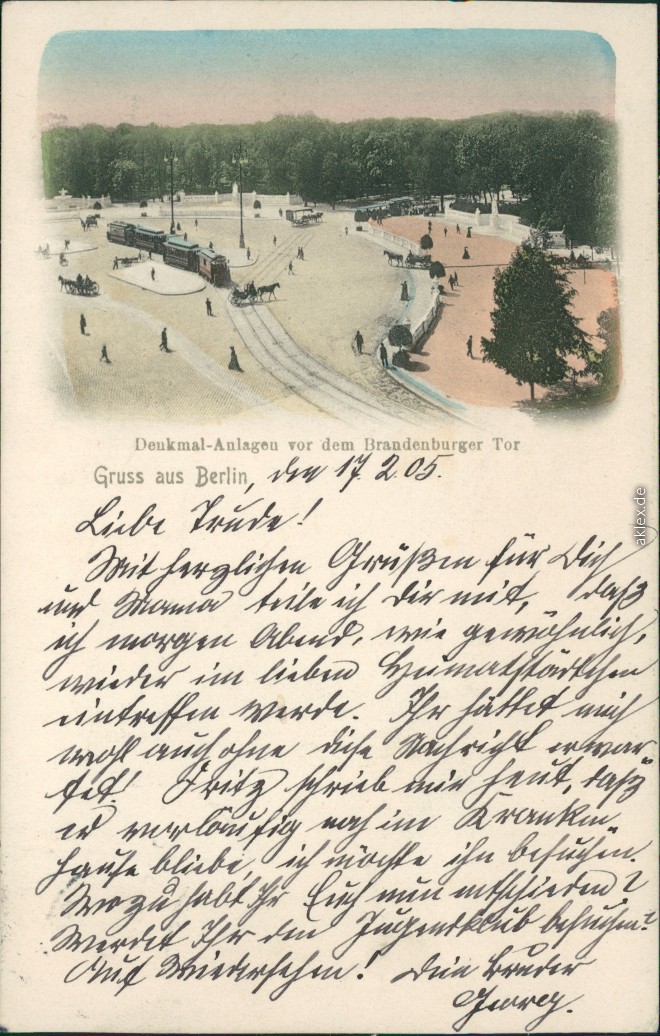 Denkmal-Anlagen vor dem Brandenburger Tor
Gruss aus Berlin, den 17.2.05.
Liebe Trude!
Mit herzlichen Grüßen für Dich
und Mama teile ich Dir mit, daß
ich morgen Abend, wie gewöhnlich,
wieder im lieben Heimatstädtchen
eintreffen werde. Ihr hättet mich
wohl auch ohne diese Nachricht erwar
tet! Fritz schrieb mir heut, daß
er vorläufig noch im Kranken
hause bliebe, ich möchte ihn besuchen.
Wozu habt Ihr Euch nun entschieden?
Werdet Ihr den Jugendklub besuchen?
Auf Wiedersehen! Dein Bruder
Georg.
aklex.de